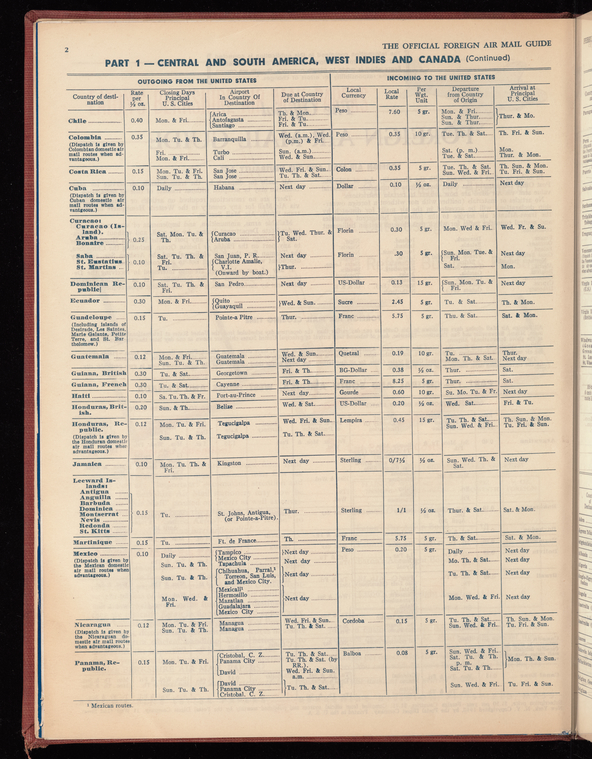 2
THE OFFICIAL FOREIGN AIR MAIL GUIDE
PART 1 — CENTRAL AND SOUTH AMERICA, WEST INDIES AND CANADA (Continued)
OUTGOING FROM THE UNITED STATES INCOMING TO THE UNITED STATES
Country of desti-nation Rate per ½ oz. Closing Days Principal U. S. Cities Airport In Country Of Destination Due at Country of Destination Local Currency Local Rate Per Wgt. Unit Departure from Country of Origin Arrival at Principal U. S. Cities
Chile 0.40 Mon. & Fri. Arica Th. & Mon. Peso 7.60 5 gr. Mon. & Fri. Thur. & Mo.
Antofagasta Fri. & Tu. Sun. & Thur.
Santiago Fri. & Tu. Sun. & Thur.
Colombia 0.35 Mon. Tu. & Th. Barranquilla Wed. (a.m.), Wed. (p.m.) & Fri. Peso 0.35 10 gr. Tue. Th. & Sat. Th. Fri. & Sun.
(Dispatch is given by
Colombian domestic air
mail routes when ad-
vantageous.)
Fri. Turbo Sun. (a.m.) Sat. (p. m.) Mon.
Mon. & Fri. Cali Wed. & Sun. Tue. & Sat. Thur. & Mon.
Costa Rica 0.15 Mon. Tu. & Fri. San Jose Wed. Fri. & Sun. Colon 0.35 5 gr. Tue. Th. & Sat. Th. Sun. & Mon.
Sun. Tu. & Th. San Jose Tu. Th. & Sat. Sun. Wed. & Fri. Tu. Fri. & Sun.
Cuba 0.10 Daily Habana Next day Dollar 0.10 ½ oz. Daily Next day
(Dispatch is given by
Cuban domestic air
mail routes when ad-
vantgeous.)
Curacao:
Curacao (Is-
land).
Aruba
Bonaire
0.25 Sat. Mon. Tu. & Th. Curacao Tu. Wed. Thur. & Sat. Florin 0.30 5 gr. Mon. Wed & Fri. Wed. Fr. & Su.
Aruba
Saba
St. Eustatius
St. Martins
0.10 Sat. Tu. Th. & Fri. San Juan, P. R. Next day Florin .30 5 gr. Sun. Mon. Tue. & Fri. Next day
Tu. Charlotte Amalie, V.I. Thur. Sat. Mon.
(Onward by boat.)
Dominican Re-
public 0.10 Sat. Tu. Th. & Fri. San Pedro Next day US-Dollar 0.13 15 gr. Sun. Mon. Tu. & Fri. Next day
Ecuador 0.30 Mon. & Fri. Quito Wed. & Sun. Sucre 2.45 5 gr. Tu. & Sat. Th. & Mon.
Guayaquil
Guadeloupe 0.15 Tu. Pointe-a Pitre Thur. Franc 5.75 5 gr. Thu. & Sat. Sat. & Mon.
(Including Islands of
Desirade, Les Saintes,
Marie Galante, Petite
Terre, and St. Bar
tholomew.)
Guatemala 0.12 Mon. & Fri. Guatemala Wed. & Sun. Quetzal 0.19 10 gr. Tu. Thur.
Sun. Tu. & Th. Guatemala Next day Mon. Th. & Sat. Next day
Guiana, British 0.30 Tu. & Sat. Georgetown Fri. & Th. BG-Dollar 0.38 ½ oz. Thur. Sat.
Guiana, French 0.30 Tu. & Sat. Cayenne Fri. & Th. Franc 8.25 5 gr. Thur. Sat.
Haiti 0.10 Sa. Tu. Th. & Fr. Port-au-Prince Next day Gourde 0.60 10 gr. Su. Mo. Tu. & Fr. Next day
Honduras, Brit-
ish. 0.20 Sun. & Th. Belize Wed. & Sat. US-Dollar 0.20 ½ oz. Wed. Sat. Fri. & Tu.
Honduras, Re-
public. 0.12 Mon. Tu. & Fri. Tegucigalpa Wed. Fri. & Sun. Lempira 0.45 15 gr. Tu. Th. & Sat. Th. Sun. & Mon.
Sun. Wed. & Fri. Tu. Fri. & Sun.
(Dispatch is given by
the Honduran domestic
air mail routes when
advantageous.)
Sun. Tu. & Th. Tegucigalpa Tu. Th. & Sat.
Jamaica 0.10 Mon. Tu. Th. & Fri. Kingston Next day Sterling 0/7½ ½ oz. Sun. Wed. Th. & Sat. Next day
Leeward Is-
lands:
Antigua
Anguilla
Barbuda
Dominica
Montserrat
Nevis
Redonda
St. Kitts
0.15 Tu. St. Johns, Antigua, (or Pointe-a-Pitre). Thur. Sterling 1/1 ½ oz. Thur. & Sat. Sat. & Mon.
Martinique 0.15 Tu. Ft. de France Th. Franc 5.75 5 gr. Th. & Sat. Sat. & Mon.
Mexico 0.10 Daily Tampico Next day Peso 0.20 5 gr. Daily Next day
Mexico City
(Dispatch is given by
the Mexican domestic
air mail routes when
advantageous.)
Sun. Tu. & Th. Tapachula Next day Mo. Th. & Sat. Next day
Sun. Tu. & Th. Chihuahua, Parral,¹ Torreon, San Luis, and Mexico City. Next day Tu. Th. & Sat. Next day
Mon. Wed. & Fri. Mexicali¹ Next day Mon. Wed. & Fri. Next day
Hermosillo
Mazatlan
Guadalajara
Mexico City
Nicaragua 0.12 Mon. Tu. & Fri. Managua Wed. Fri. & Sun. Cordoba 0.15 5 gr. Tu. Th. & Sat. Th. Sun. & Mon.
Sun. Tu. & Th. Managua Tu. Th. & Sat. Sun. Wed. & Fri. Tu. Fri. & Sun.
(Dispatch is given by
the Nicaraguan do-
mestic air mail routes
when advantageous.)
Panama, Re-
public. 0.15 Mon. Tu. & Fri. Cristobal, C. Z. Tu. Th. & Sat. Balboa 0.08 5 gr. Sun. Wed. & Fri. Mon. Th. & Sun.
Panama City Tu. Th. & Sat. (by RR.). Sat. Tu. & Th. p. m.
David Wed. Fri. & Sun. a.m. Sat. Tu. & Th.
Sun. Tu. & Th. David Tu. Th. & Sat. Sun. Wed. & Fri. Tu. Fri. & Sun.
Panama City
Cristobal, C. Z.
¹ Mexican routes.